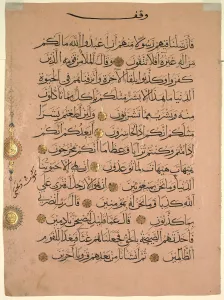 وقف
فأرسلنا فيهم رسولا منهم أن اعبدوا الله ما لكم
من إله غيره أفلا تتقون وقال الملأ من قومه الذين
كفروا وكذبوا بلقاء الآخرة وأترفناهم في الحيوة
الدنيا ما هذا إلا بشر مثلكم يأكل مما تأكلون
منه ويشرب مما تشربون ولئن أطعتم بشرا
مثلكم إنكم إذا لخاسرون أيعدكم أنكم
إذا متم وكنتم ترابا وعظاما أنكم مخرجون
هيهات هيهات لما توعدون إن هي إلا حياتنا
الدنيا نموت ونحيا وما نحن بمبعوثين إن هو إلا رجل افترى على
الله كذبا وما نحن له بمؤمنين قال رب انصرني
بما كذبون قال عما قليل ليصبحن نادمين
فأخذتهم الصيحة بالحق فجعلناهم غثاء فبعدا للقوم
الظالمين ثم أنشأنا من بعدهم قرونا آخرين